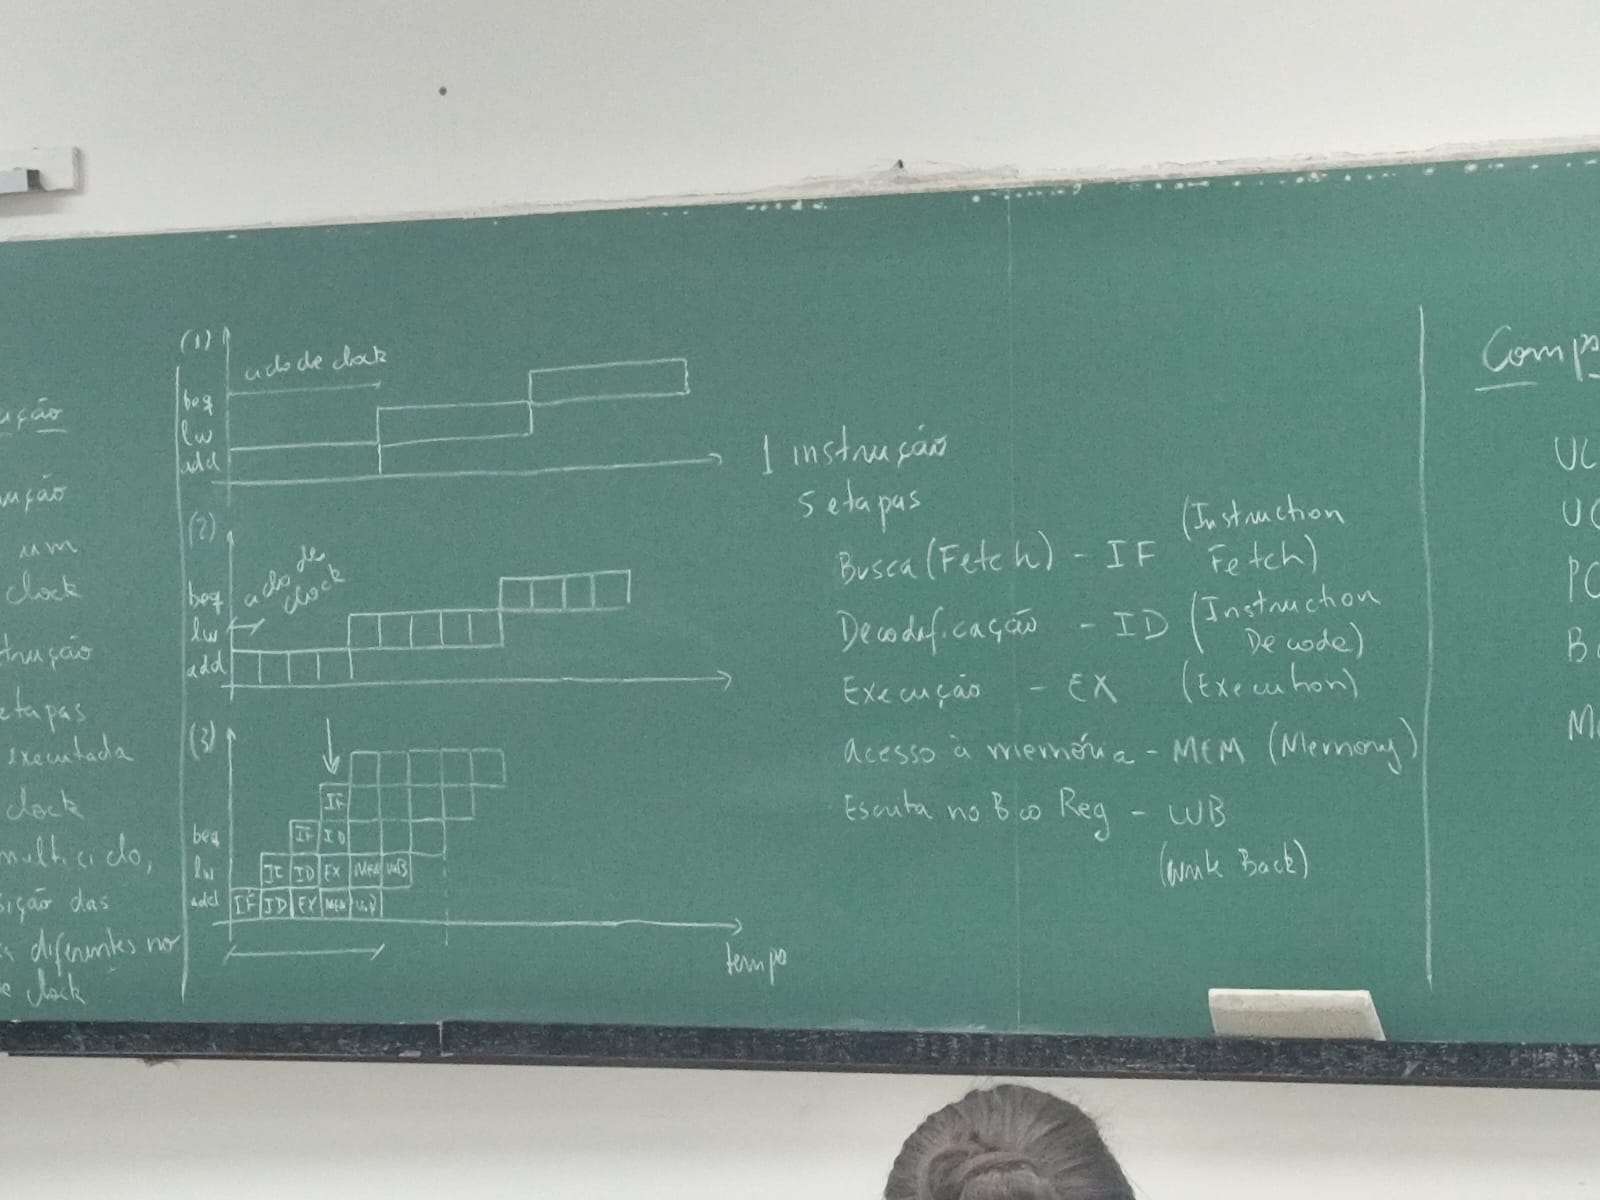 ução
um
clock
etapas
executada
clock
das
diferentes no
clock
(1)
ciclo de clock
beq
lw
add
(2)
ciclo de
clock
beq
lw
add
(3)
IF
IF ID
beq
lw IF ID EX MEM WB
add IF ID EX MEM WB
tempo
1 instrução
5 etapas
Busca (Fetch) - IF (Instruction
Fetch)
Decodificação - ID (Instruction
Decode)
Execução - EX (Execution)
Acesso à memória - MEM (Memory)
Escrita no Bco Reg - WB
(Write Back)
Comp
UC
PC